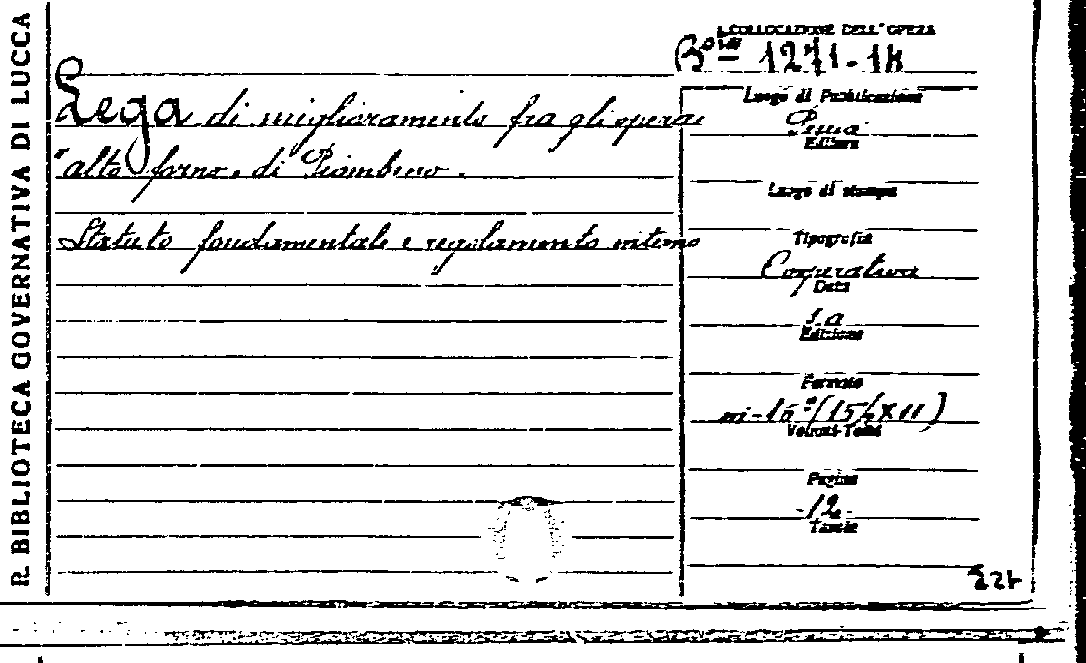 R. BIBLIOTECA GOVERNATIVA DI LUCCA
COLLOCAZIONE DELL'OPERA
1271-14
Lega di miglioramento fra gli operai
"alto forno" di Piombino.
Statuto fondamentale e regolamento interno
Luogo di Pubblicazione
Editore
Luogo di stampa
Tipografia
Cooperativa
Data
s.a
Edizione
Formato
in-16° (15½ X 11)
Volumi-Tomi
Pagine
-12-
Tavole